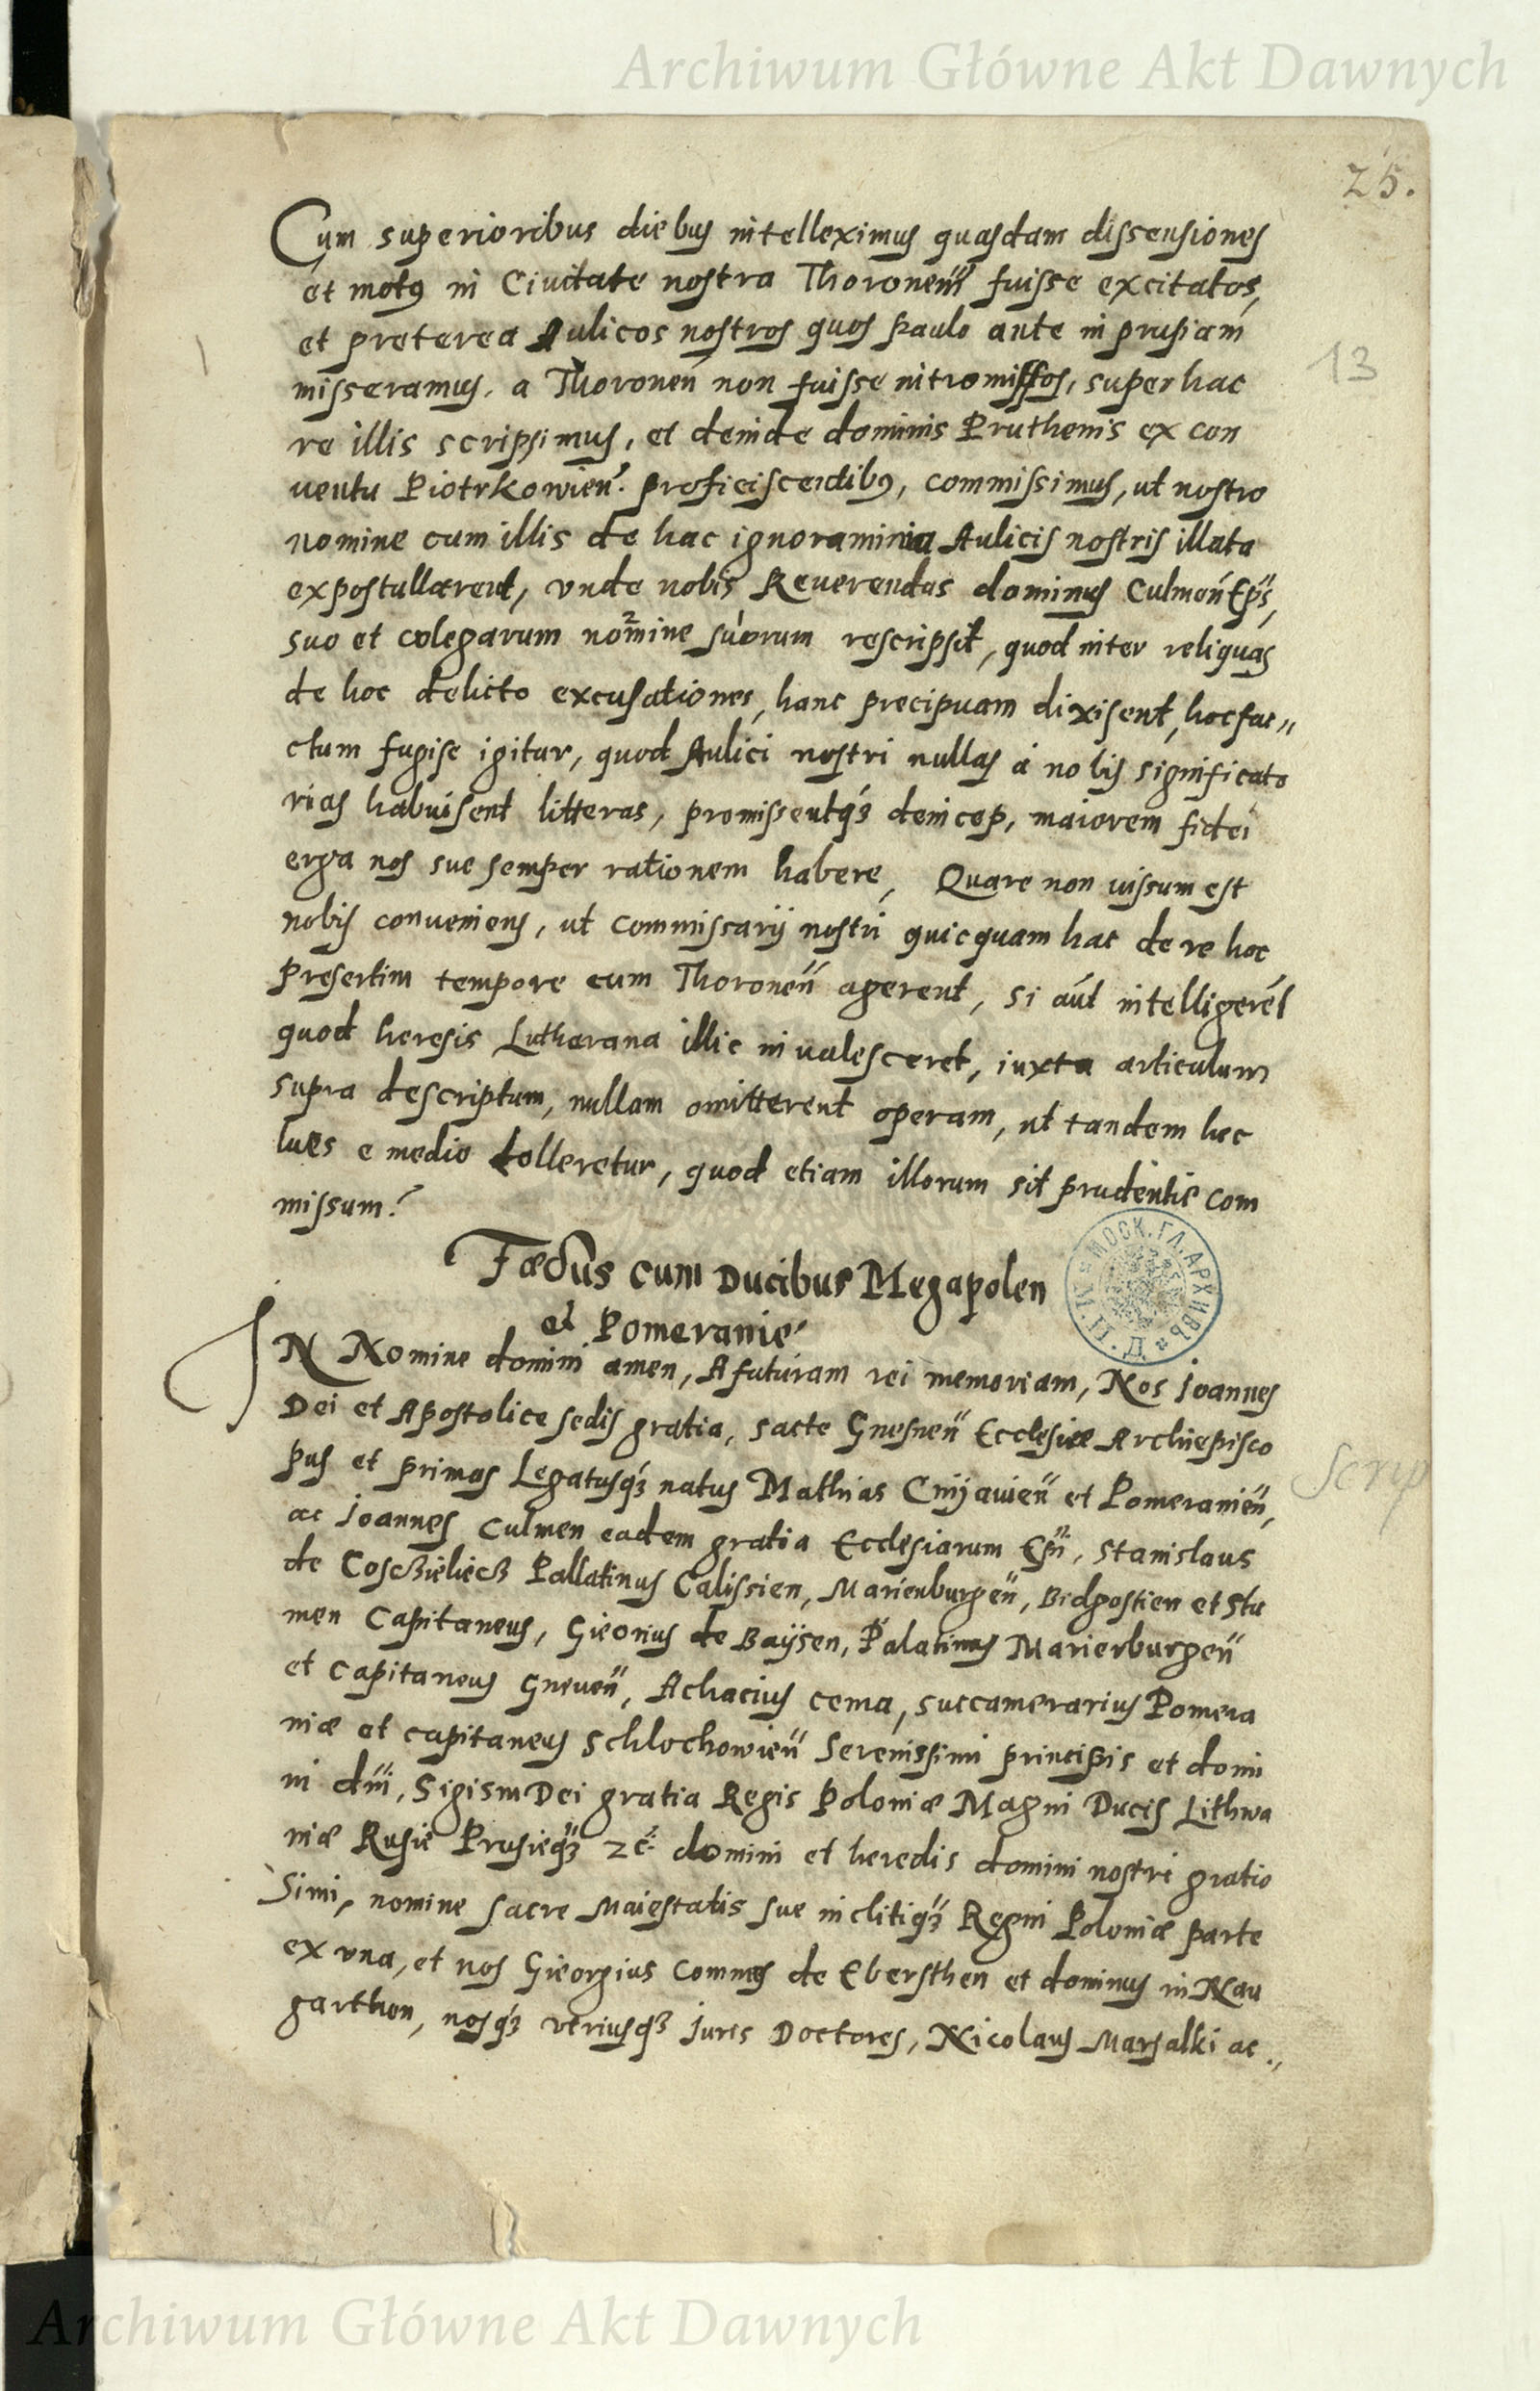 Archiwum Główne Akt Dawnych
25.
Cum superioribus diebus intelleximus quasdam dissensiones
et motꝯ in Civitate nostra Thoronen̄ fuisse excitatos,
et preterea Aulicos nostros quos paulo ante in prusiam
13
misseramus, a Thoronen̄ non fuisse intromissos, super hac
re illis scripsimus, et deinde dominis Pruthenis ex con
ventu Piotrkowien̄. proficiscentibꝯ, commissimus, ut nostro
nomine cum illis de hac ignoraminia Aulicis nostris illata
expostullarent, vnde nobis Reverendus dominus Culmen̄ Ep̄s,
suo et colegarum nomine suorum rescripsit, quod inter reliquas
de hoc delicto excusationes, hanc precipuam dixisent, hoc fac„
ctum fugise igitur, quod Aulici nostri nullas á nobis significato
rias habuisent litteras, promissentqꝫ deincep, maiorem fidei
erga nos sue semper rationem habere, Quare non vissum est
nobis conveniens, ut commissarij nostri quicquam hac de re hoc
presertim tempore cum Thoronen̄ agerent, si aut̄ intelligerēt
quod heresis Lutherana illic invalesceret, iuxta articulum
supra descriptum, nullam omitterent operam, ut tandem hec
lues e medio tolleretur, quod etiam illorum sit prudentie com
missum.
Fædus cum Ducibus Megapolen
et Pomeranie
МОСК. ГЛ. АРХИВЪ
IN Nomine domini amen, A futuram rei memoriam, Nos Joannes
Dei et Apostolice sedis gratia, sacte Gnesnen̄ Ecclesiæ Archiepisco
pus et primas Legatusqꝫ natus Mathias Cuijavien̄ et Pomeranien̄,
Scrip
ac Joannes Culmen eadem gratia Ecclesiarum Ep̄i, Stanislaus
de Cosczieliecz Pallatinus Calissien, Marienburgen̄, Bidgostien et Stu
men Capitaneus, Gieorius de Baijsen, Palatinus Marierburgen̄
et Capitaneus Gneven̄, Achacius cema, succamerarius Pomera
niæ et capitaneus Schlochowien̄ Serenissimi principis et domi
ni dn̄i, Sigism Dei gratia Regis Poloniæ Magni Ducis Lithwa
niæ Rusie Prusieqꝫ ꝛc̄. domini et heredis domini nostri gratio
simi, nomine sacre Maiestatis sue inclitiqꝫ Regni Poloniæ parte
ex vna, et nos Gieorgius Commes de Ebersthen et dominus in Nau
garthen, nosqꝫ vtriusqꝫ Juris Doctores, Nicolaus Marsalki ac„
Archiwum Główne Akt Dawnych